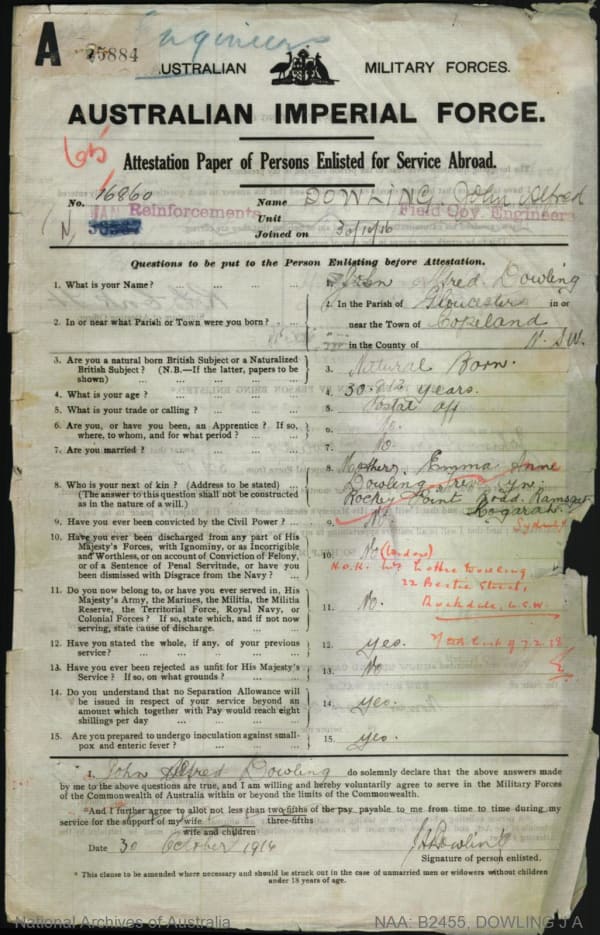 A
25884
Engineers
AUSTRALIAN MILITARY FORCES.
AUSTRALIAN IMPERIAL FORCE.
Attestation Paper of Persons Enlisted for Service Abroad.
No. 16860 Name DOWLING, John Alfred
JAN Reinforcements Unit Field Coy. Engineers
Joined on 30/10/16
Questions to be put to the Person Enlisting before Attestation.
1. What is your Name? ... 1. John Alfred Dowling
2. In or near what Parish or Town were you born? ... 2. In the Parish of Gloucester in or
near the Town of Copeland
in the County of N.S.W.
3. Are you a natural born British Subject or a Naturalized
British Subject? (N.B.—If the latter, papers to be
shown) ... 3. Natural Born.
4. What is your age? ... 4. 30 years.
5. What is your trade or calling? ... 5. Postal off
6. Are you, or have you been, an Apprentice? If so,
where, to whom, and for what period? ... 6. No.
7. Are you married? ... 7. No.
8. Who is your next of kin? (Address to be stated) ...
(The answer to this question shall not be constructed
as in the nature of a will.) 8. Mother, Emma Anne
Dowling
Rocky Point Road, Ramsgate
Kogarah
Sydney
9. Have you ever been convicted by the Civil Power? ... 9. No.
10. Have you ever been discharged from any part of His
Majesty's Forces, with Ignominy, or as Incorrigible
and Worthless, or on account of Conviction of Felony,
or of a Sentence of Penal Servitude, or have you
been dismissed with Disgrace from the Navy? ... 10. No
(London)
N.O.K. Mrs Lottie Dowling,
22 Beatie Street,
Rockdale, N.S.W.
11. Do you now belong to, or have you ever served in, His
Majesty's Army, the Marines, the Militia, the Militia
Reserve, the Territorial Force, Royal Navy, or
Colonial Forces? If so, state which, and if not now
serving, state cause of discharge. ... 11. No.
12. Have you stated the whole, if any, of your previous
service? ... 12. yes.
13. Have you ever been rejected as unfit for His Majesty's
Service? If so, on what grounds? ... 13. No
14. Do you understand that no Separation Allowance will
be issued in respect of your service beyond an
amount which together with Pay would reach eight
shillings per day ... 14. yes.
15. Are you prepared to undergo inoculation against small-
pox and enteric fever? ... 15. yes.
I, John Alfred Dowling do solemnly declare that the above answers made
by me to the above questions are true, and I am willing and hereby voluntarily agree to serve in the Military Forces
of the Commonwealth of Australia within or beyond the limits of the Commonwealth.
*And I further agree to allot not less than two-fifths of the pay payable to me from time to time during my
three-fifths
service for the support of my wife
wife and children
Date 30 October 1916 JADowling
Signature of person enlisted.
* This clause to be amended where necessary and should be struck out in the case of unmarried men or widowers without children
under 18 years of age.
National Archives of Australia NAA: B2455, DOWLING J A